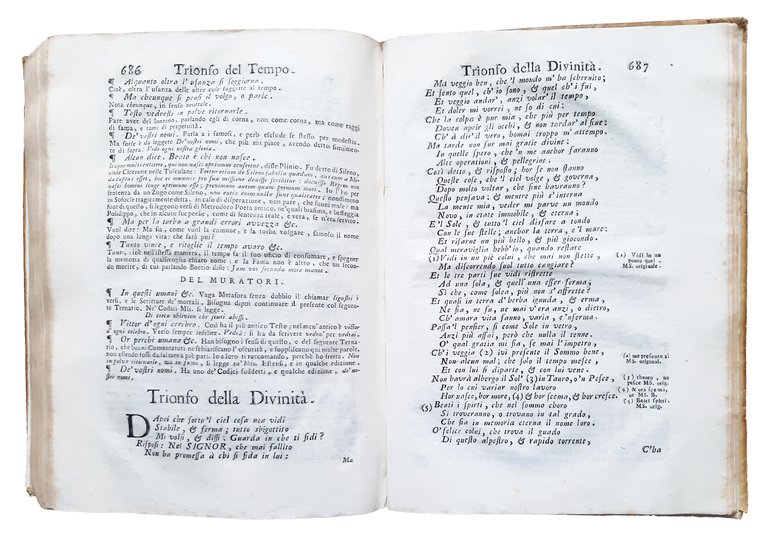 686 Trionfo del Tempo.
¶ Alquanto oltra l'usanza si seggiorna.
Cioè, oltra l'usanza delle altre cose suggette al tempo.
¶ Ma cheunque si pensi il volgo, o parle.
Nota cheunque, in senso neutrale.
¶ Tosto vedresti in polve ritornarle.
Fare aver del lontano, parlando egli di corna, non come corna, ma come raggi
di fama, e rami di perpetuità.
¶ De' vostri nomi. Parla a i famosi, e però esclude se stesso per modestia.
Ma forse è da leggere De' nostri nomi, che più mi piace, avendo detto similmente
te di sopra: Vede ogni nostra gloria.
¶ Alcun dice. Beato è chi non nasce.
Itaque multi extitere, qui non nasci optimum censerent, disse Plinio. Fu detto di Sileno
onde Cicerone nelle Tusculane:
da un Zugo come Sileno,
in Sofocle tragicamente detta, in caso di disperazione, non pare, che suoni male: ma
Posidippo, che in alcune sue poesie, come di sentenza reale, e vera, se n'era servito.
¶ Ma per la turba a grandi errori avvezza &c.
Vuol dire: Ma sia, come vuol la comune, e la turba volgare, famoso il nome
dopo una lunga vita: che sarà poi?
¶ Tanto vince, e ritoglie il tempo avaro &c.
Tanto, cioè nell'istessa maniera, il tempo fa il suo uficio di consumare, e spegner
la memoria di qualsivoglia chiaro nome: e la Fama non è altro, che un secondo
do morire, di cui parlando Boezio disse: Jam vos secunda mors manet.
DEL MURATORI.
¶ In questi umani &c. Vaga Metafora senza dubbio il chiamar ligustri i
versi, e le Scritture de' mortali. Bisogna dipoi continuare il presente col seguente
Ternario. Ne' Codici Mss. si legge:
Di cieca oblivion che scuri abissi.
¶ Vittor d'ogni cerebro. Così ha il più antico Testo; nel men antico è vittor
d'ogni celebro. Verso sempre infelice. Vedrà: si ha da scrivere vedra' per vedrai.
¶ Or perche umana &c. Han bisogno i sensi di questo, e del seguente Ternario,
rio, che buoni Comentatori ne schiariscano l'oscurità, e suppliscano qui molte parole,
non essendo tosse da salutarsi più parti. Io a loro ti raccomando, perchè ho fretta. Non
ha posto natura, in vece di non fa, si legge ne' Mss. Estensi, e in qualche edizione.
¶ De' vostri nomi. Ha uno de' Codici suddetti, e qualche edizione, de'
nostri nomi.
Trionfo della Divinità.
DApoi che sotto 'l ciel cosa non vidi
Stabile, & ferma; tutto sbigottito
Mi volsi, & dissi: Guarda in che ti fidi?
Risposi: Nel SIGNOR, che mai fallito
Non ha promessa à chi si fida in lui:
Ma
Trionfo della Divinità. 687
Ma veggio ben, che 'l mondo m' ha schernito;
Et sento quel, ch' io sono, & quel ch' i fui,
Et veggio andar', anzi volar il tempo,
Et doler mi vorrei, ne so di cui:
Che la colpa è pur mia, che più per tempo
Dovea aprir gli occhi, & non tardar' al fine:
Ch' à dir'l vero, homai troppo m' attempo.
Ma tarde non fur mai gratie divine:
In quelle spero, che 'n me anchor faranno
Alte operationi, & pellegrine.
Così detto, & risposto; hor se non stanno
Queste cose, che 'l ciel volge, & governa,
Dopo molto voltar, che fine havranno?
Questo pensava: & mentre più s' interna
La mente mia, veder mi parve un mondo
Novo, in etate immobile, & eterna;
E 'l Sole, & tutto 'l ciel disfare a tondo
Con le sue stelle; anchor la terra, e 'l mare:
Et rifarne un più bello, & più giocondo.
Qual meraviglia hebb'io, quando restare
(1) Vidi in un piè colui, che mai non stette,
Ma discorrendo suol tutto cangiare?
Et le tre parti sue vidi ristrette
Ad una sola, & quell' una esser ferma;
Sì che, come solea, più non s' affrette?
Et quasi in terra d' herba ignuda, & erma,
Ne fia, ne fu, ne mai v' era anzi, o dietro,
Ch' amara vita fanno, varia, e 'nferma.
Passa 'l pensier, sì come Sole in vetro,
Anzi più assai, però che nulla il tenne.
O' qual gratia mi fia, se mai l' impetro,
Ch' i veggia (2) ivi presente il Sommo bene,
Non alcun mal; che solo il tempo mesce,
Et con lui si diparte, & con lui vene.
Non havrà albergo il Sol' (3) in Tauro, o 'n Pesce,
Per lo cui variar nostro lavoro
Hor nasce, hor more, (4) & hor scema, & hor cresce.
(5) Beati i spirti, che nel sommo choro
Si troveranno, o trovano in tal grado,
Che sia in memoria eterna il nome loro.
O' felice colui, che trova il guado
Di questo alpestro, & rapido torrente,
C'ha
(1) Vidi in un
punto quel.
MS. originale.
(2) me presente al
MS. originale.
(3) thauro, ne
pesce MS. orig.
(4) & ora scema,
or MS. B.
(5) Beati spirti,
MS. original.